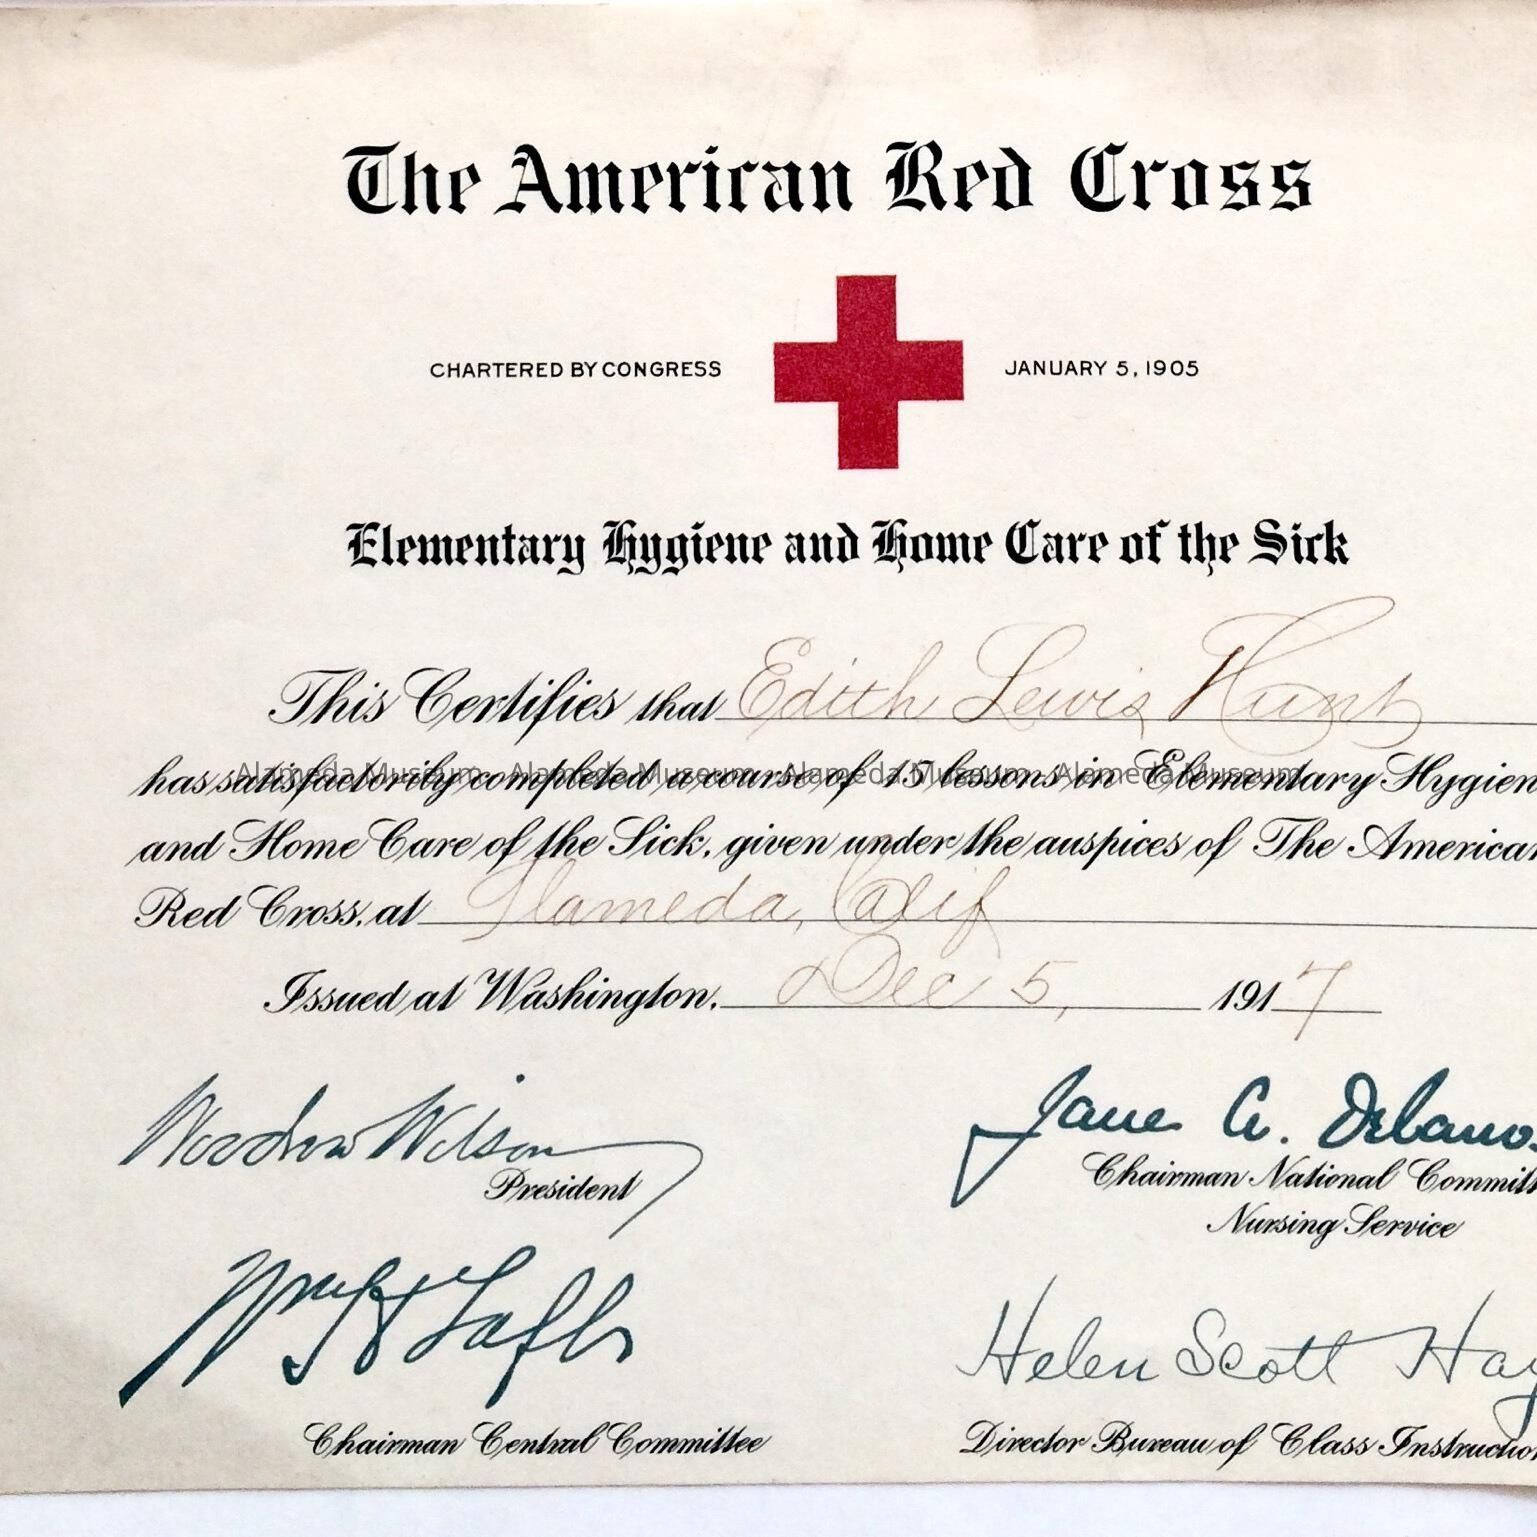 The American Red Cross
CHARTERED BY CONGRESS JANUARY 5, 1905
Elementary Hygiene and Home Care of the Sick
This Certifies that Edith Lewis Hunt
has satisfactorily completed a course of 15 lessons in Elementary Hygien
Alameda Museum Alameda Museum Alameda Museum Alameda Museum
and Home Care of the Sick, given under the auspices of The American
Red Cross, at Alameda, Calif
Issued at Washington, Dec 5, 1917
Woodrow Wilson
President
Jane A. Delano
Chairman National Committ
Nursing Service
Wm H Taft
Chairman Central Committee
Helen Scott Hay
Director Bureau of Class Instruction